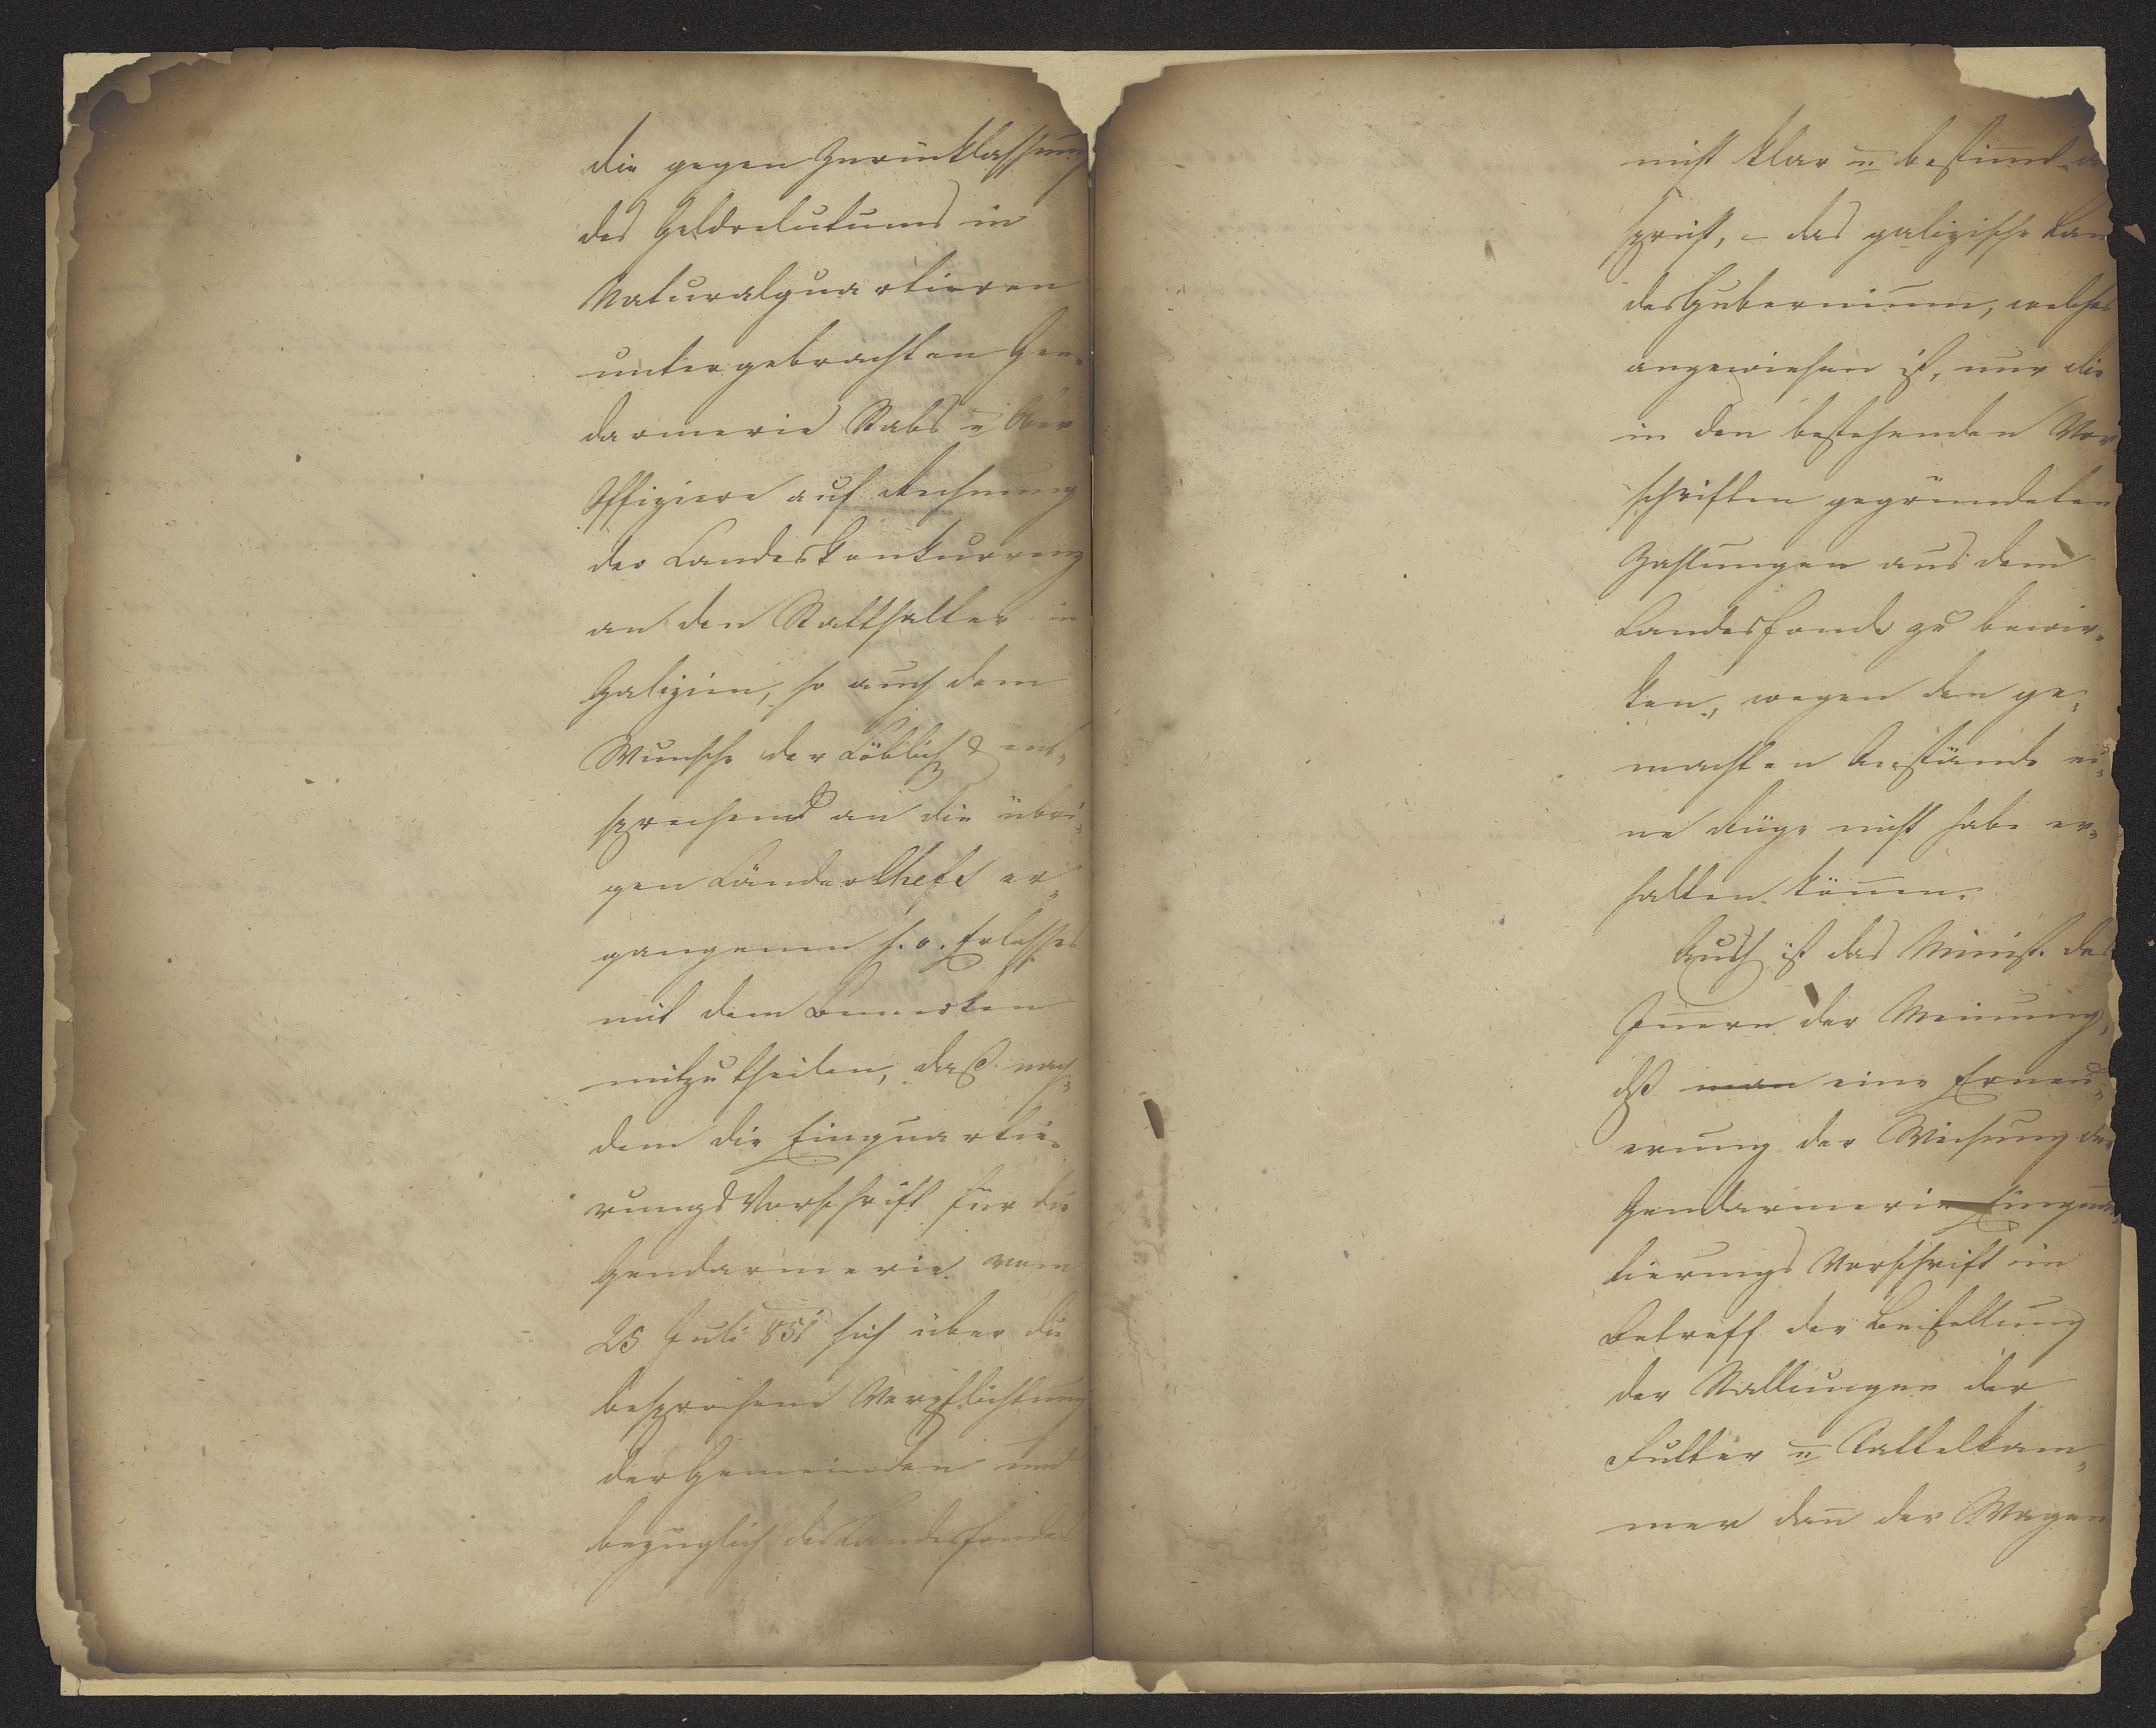 die gegen Zurücklassung
des Geldrelutums in
Naturalquartieren
untergebrachten Gen-
darmerie Stabs u Ober
Offiziere auf Rechnung
der Landeskonkurrenz
an den Statthalter in
Galizien, so auch dem
Wunsche der Löblich ent-
sprechend an die übri-
gen Länder Chefs er-
gangenen h. o. Erlasses
mit dem Bemerken
mitzutheilen, daß nach-
dem die Einquartie-
rungs Vorschrift für die
Gendarmerie vom
25 Juli 851 sich über die
besprochene Verpflichtung
der Gemeinden und
bezüglich des Landesfondes
nicht klar u bestimmt a
spricht, – das galizische Lan
desgubernium, welches
angewiesen ist, nur die
in den bestehenden Vor
schriften gegründeten
Zahlungen aus dem
Landesfonde zu bewir-
ken, wegen den ge-
machten Anstände ei-
ne Rüge nicht habe er-
halten können.
Auch ist das Minist. des
Innern der Meinung,
dß man eine Erneu-
erung der Weisung der
Gendarmerie Einquar-
tierungs Vorschrift in
Betreff der Beistellung
der Stallungen der
Futter u Sattelkam-
mer dann der Wagen